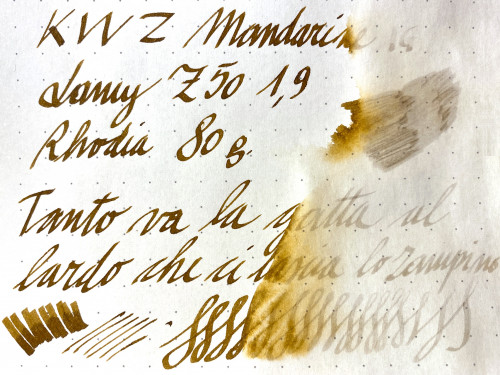 KWZ Mandarine is
Lamy Z50 1,9
Rhodia 80 g.
Tanto va la gatta al
lardo che ci lascia lo zampino